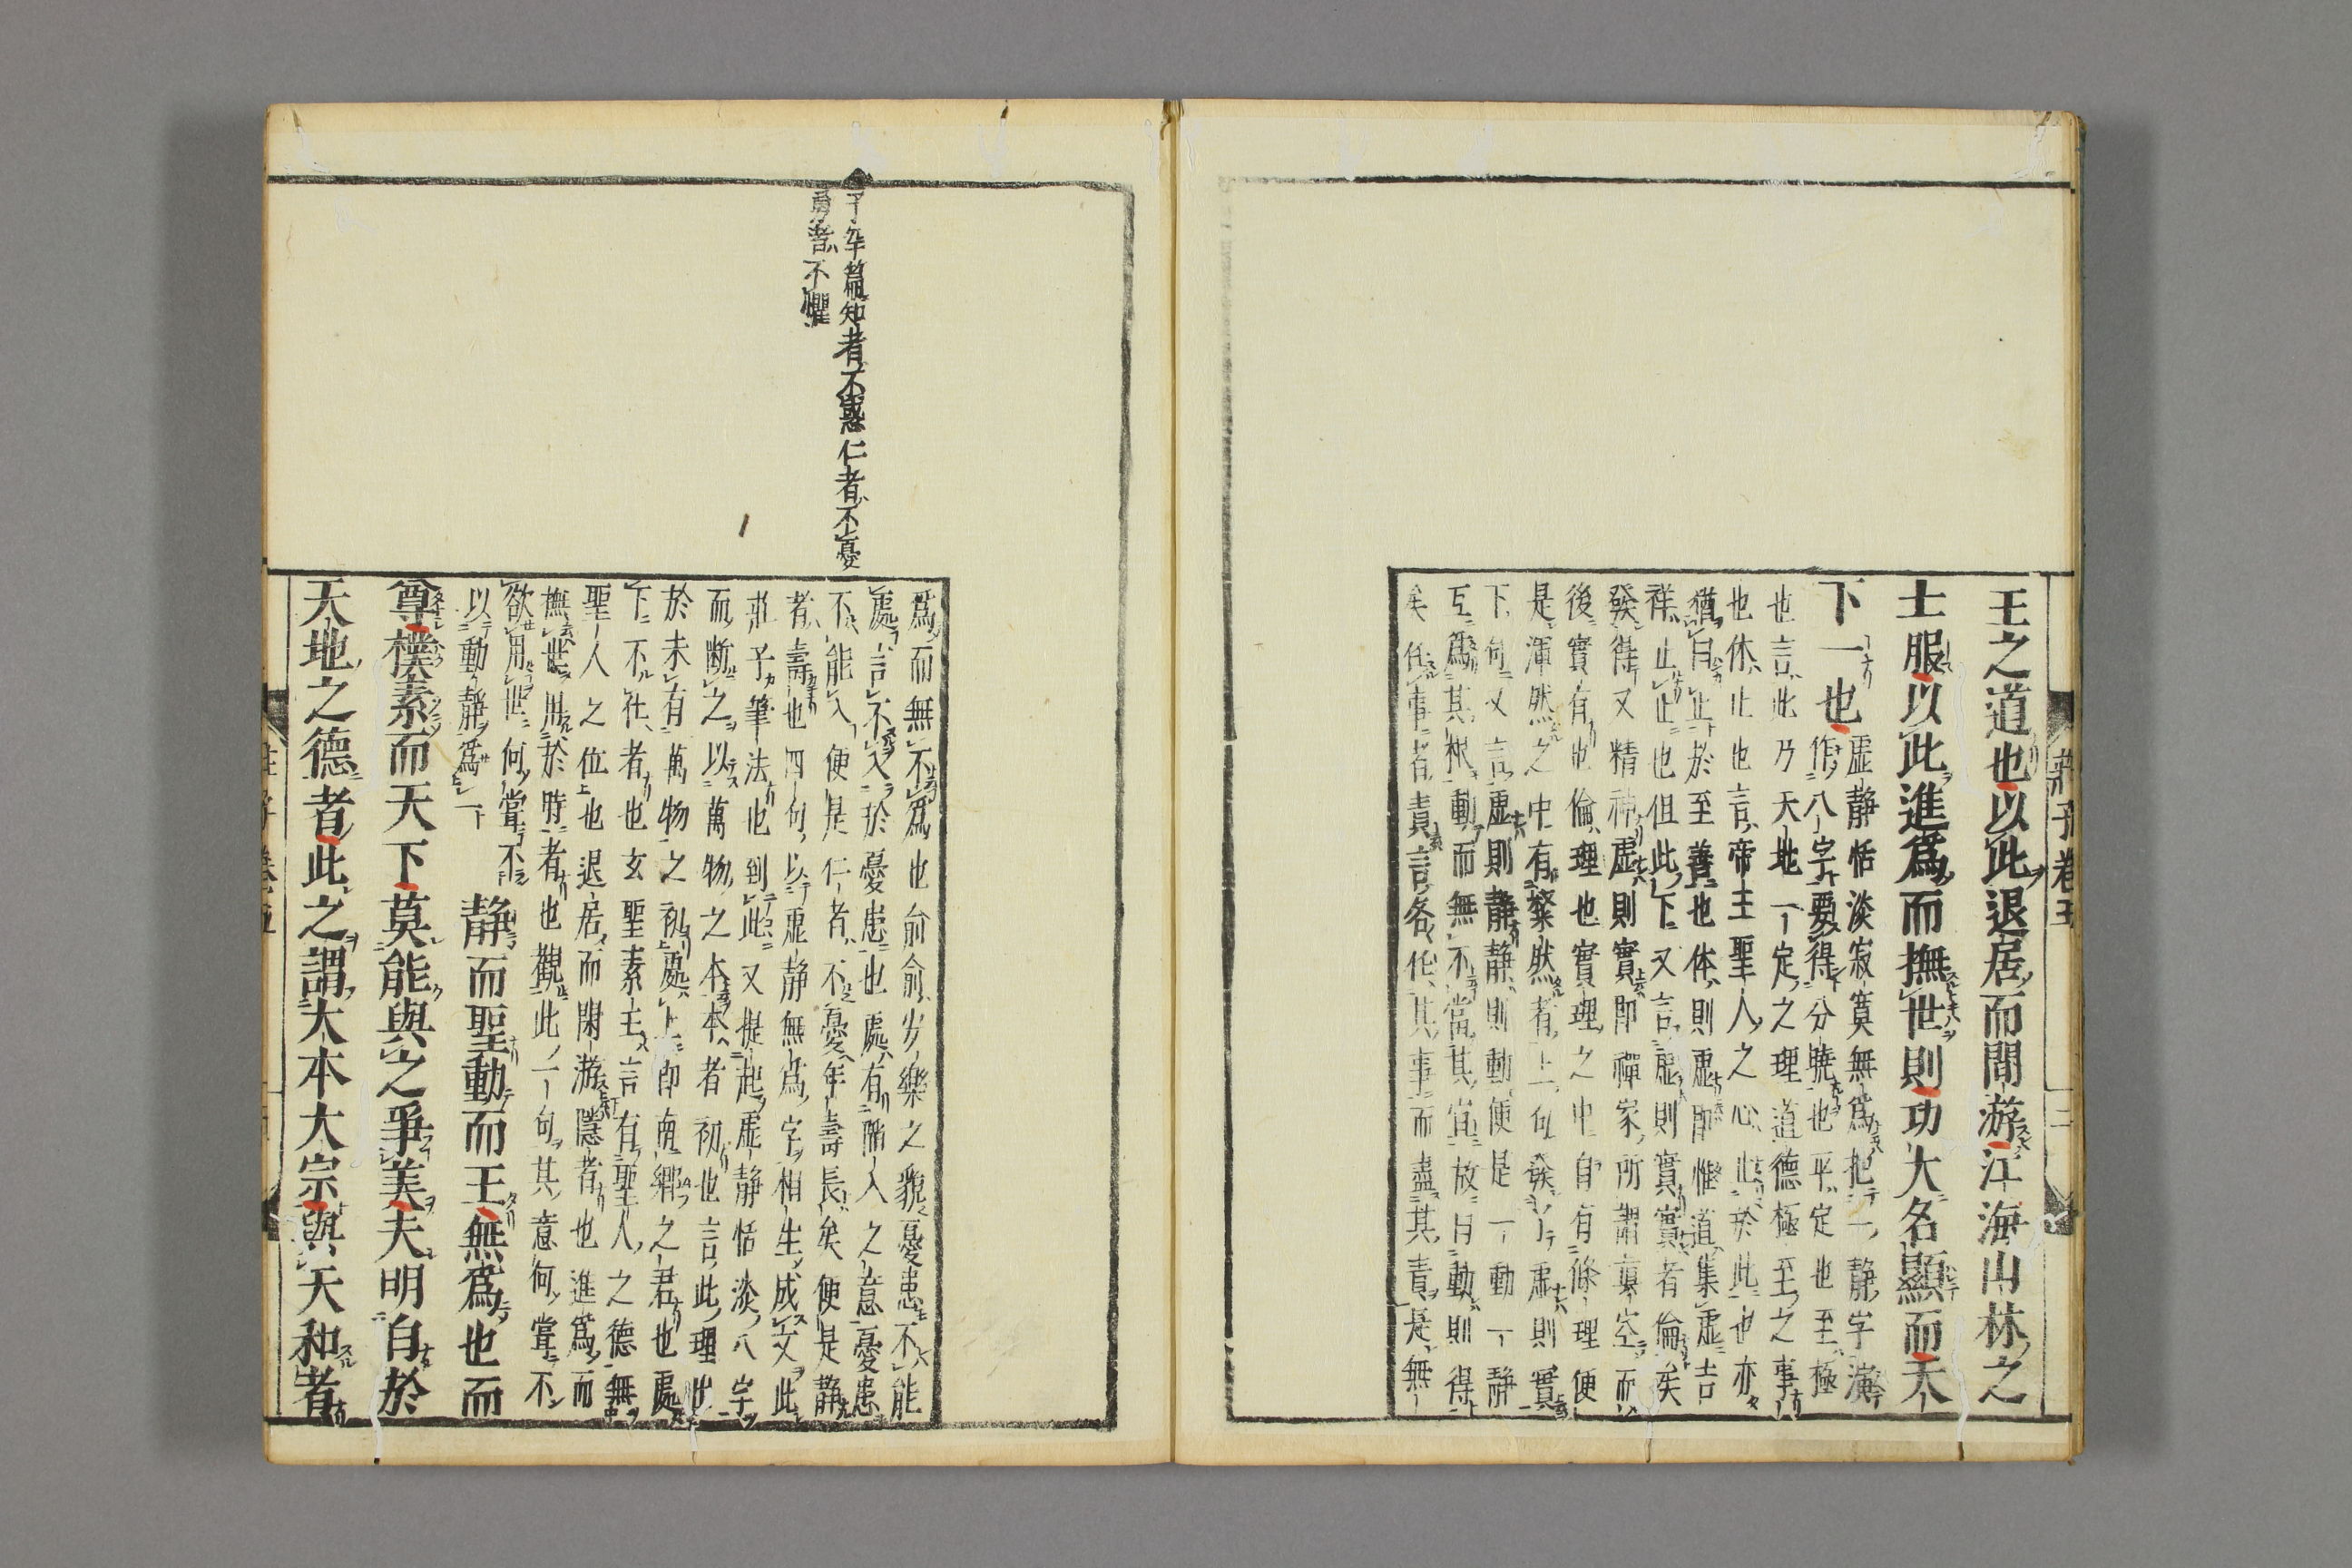 莊子卷五
王之道也以此退居而閒游江海山林之
士服以此進為而撫世則功大名顯而天
下一也
虛靜恬淡寂寞無為把一靜字演
作八字要得分曉也平定也至極
也言此乃天地一定之理道德極至之事
也休止也言帝王聖人之心止於此也亦
猶曰止於至善也休則虛即惟道集虛吉
祥止止也但此下又言虛則實實者倫矣
發得又精神虛則實即禪家所謂真空而
後實有也倫理也實理之中自有條理便
是渾然之中有粲然者上一句發了虛則實
下句又言虛則靜靜則動便是一動一靜
互為其根動而無不當其宜故曰動則得
矣任事者責言各任其事而盡其責是無
為而無不為也俞俞步樂之貌憂患不能
處言不入於憂患也處有陷入之意憂患
不能入便是仁者不憂年壽長矣便是靜
者壽也四句以虛靜無為字相生成文此
莊子筆法也到此又提起虛靜恬淡八字
而斷之以萬物之本本者初也言此理出
於未有萬物之初處上即南鄉之君也處
下不仕者也玄聖素王言有聖人之德無
聖人之位也退居而閑游隱者也進為而
撫世用於時者也觀此一句其意何嘗不
欲用世何嘗不
以動靜為一下
靜而聖動而王無為也而
尊樸素而天下莫能與之爭美夫明白於
天地之德者此之謂大本大宗與天和者
子罕篇知者不惑仁者不憂
勇者不懼